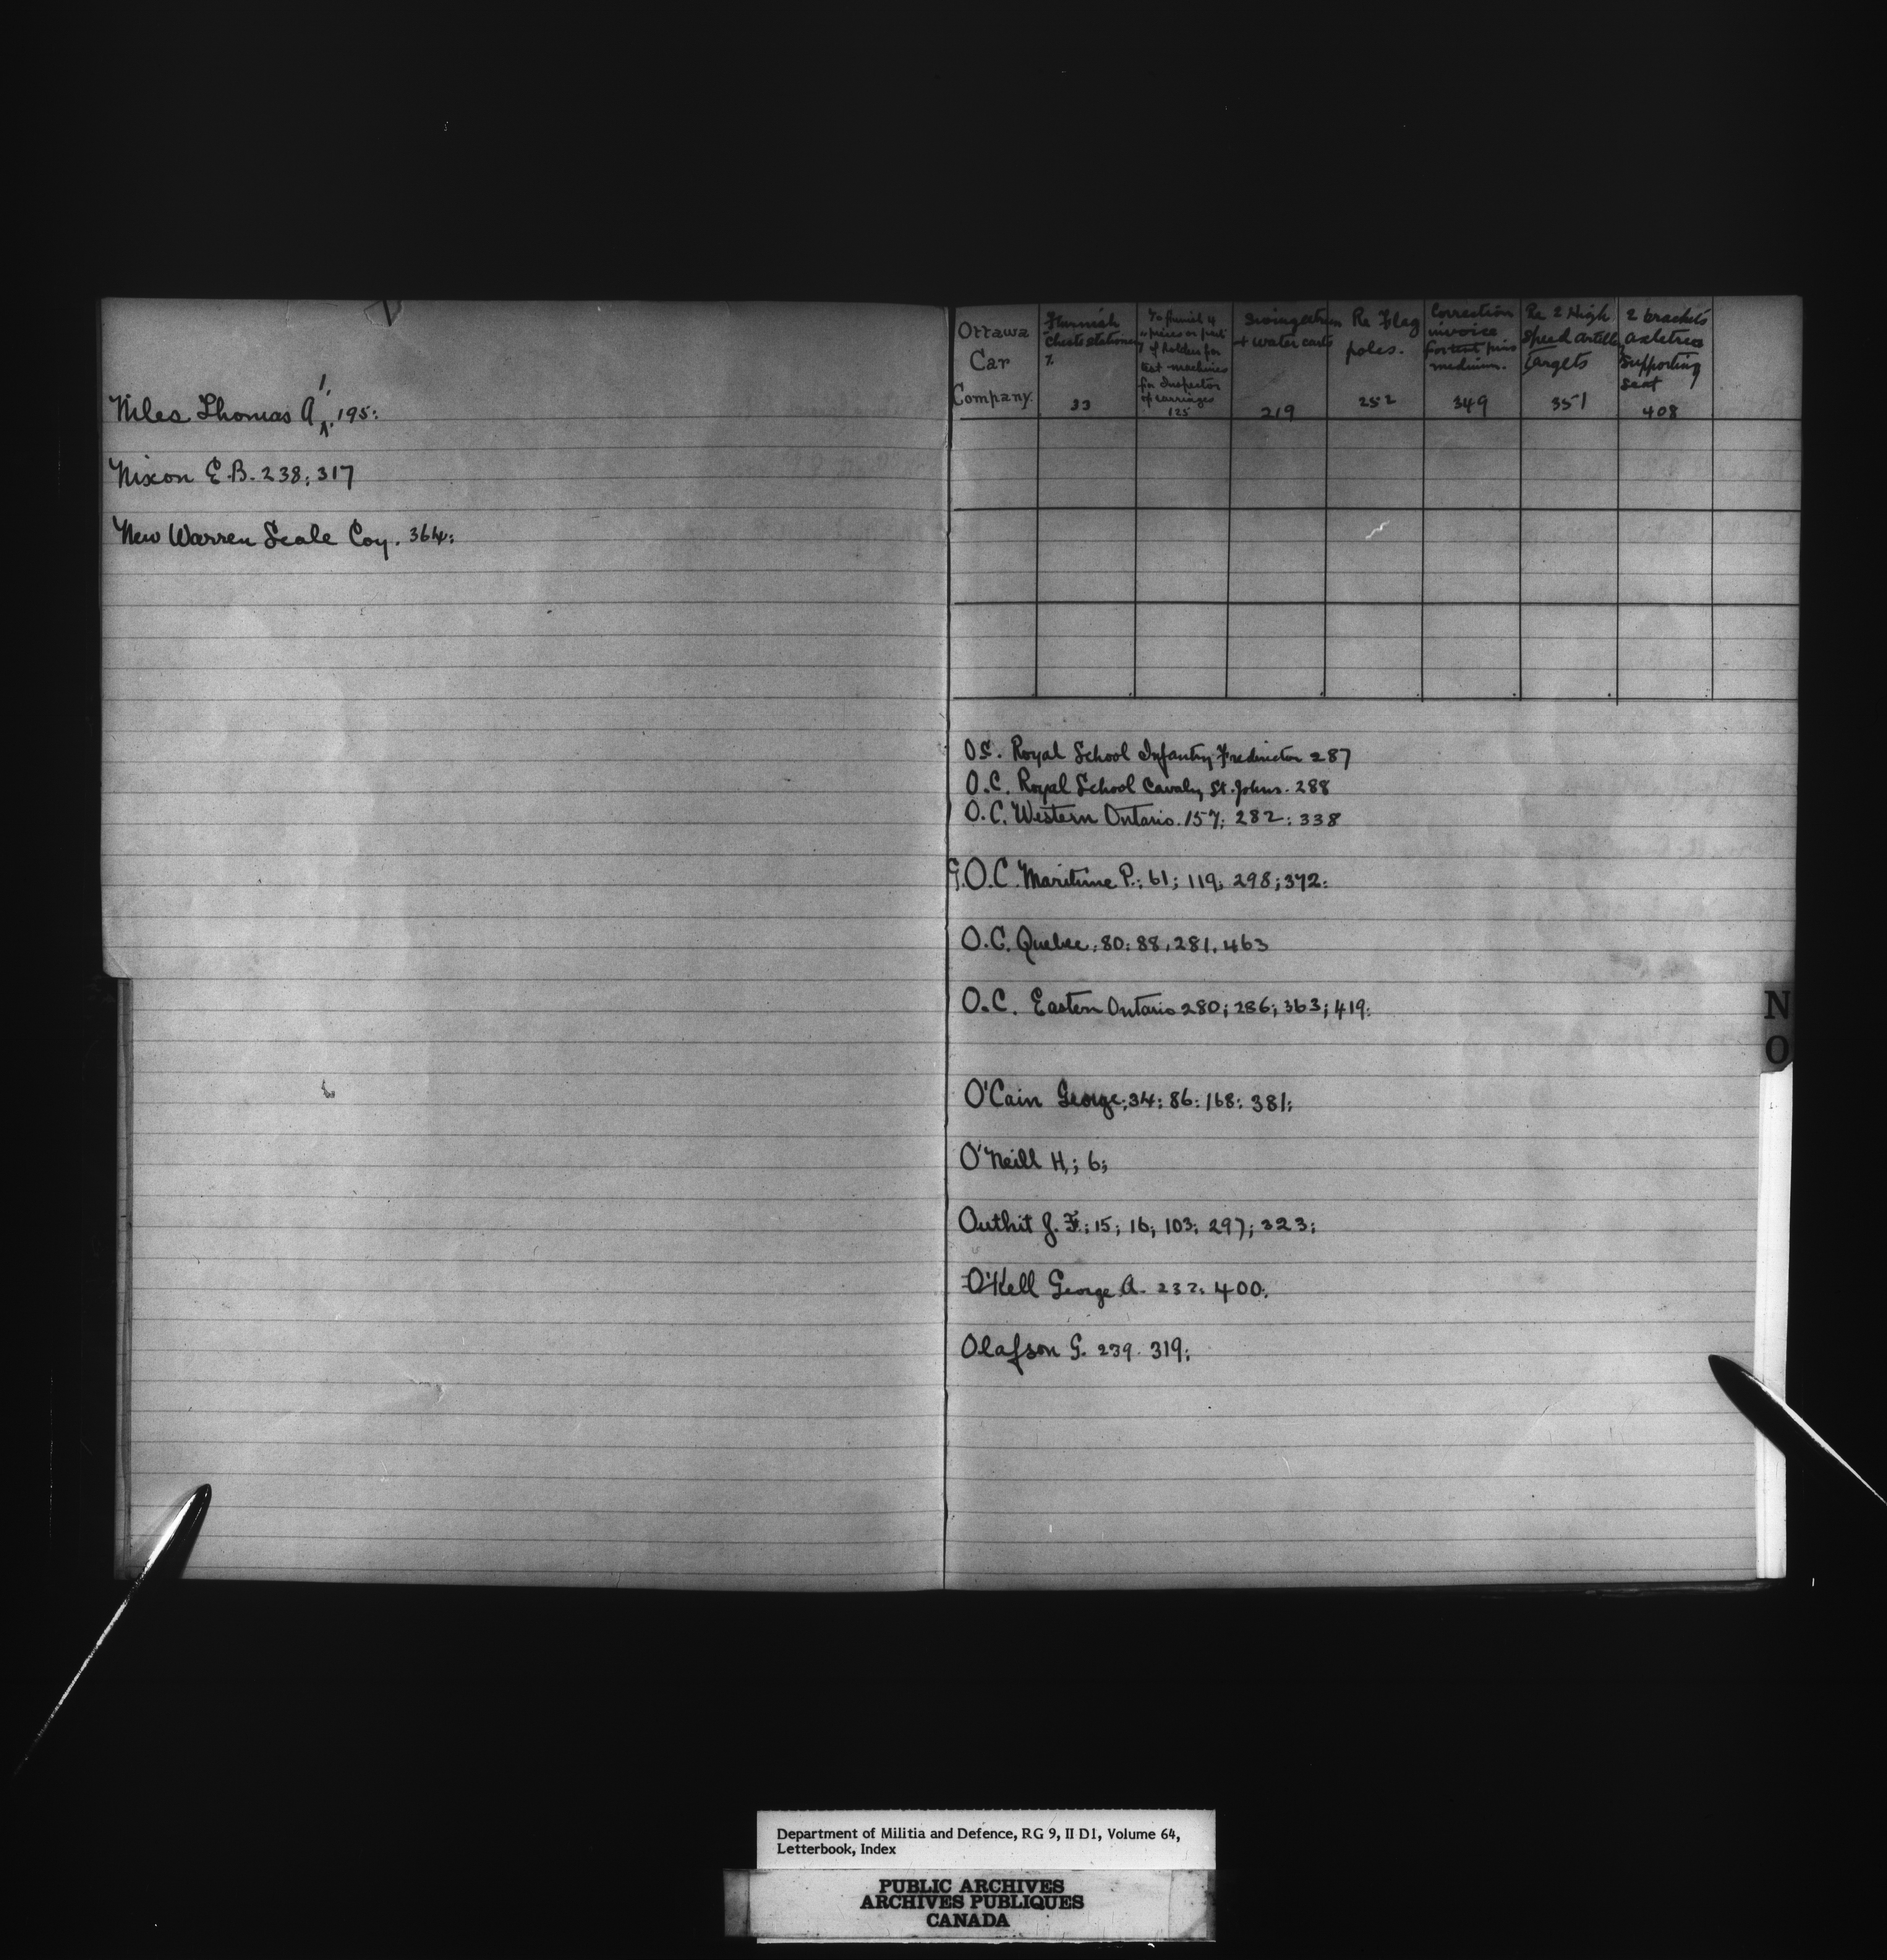 Niles Thomas A 195:
Nixon E.B. 238; 317
New Warren Scale Coy. 364:
Ottawa
Car
Company.
Furnish
Chests stationery
33
To furnish 4
of holders for
test machines
for Inspector
of carriages
125
Swingletrees
+ water carts
219
Re Flag
poles.
252
Correction
invoice
for test pins
medium.
349
Re 2 High
Speed Artillery
Targets
351
2 brackets
axletree
supporting
seat
408
O.C. Royal School Infantry Fredericton 287
O.C. Royal School Cavalry St. Johns. 288
O.C. Western Ontario. 157; 282: 338
G.O.C. Maritime P.; 61; 119; 298; 372:
O.C. Quebec; 80: 88, 281, 463
O.C. Eastern Ontario 280; 286; 363; 419:
O'Cain George; 34; 86: 168: 381;
O'Neill H.; 6;
Outhit J. F.; 15; 16; 103; 297; 323;
O'Kell George A. 232; 400;
Olafson G. 239. 319;
N
O
Department of Militia and Defence, RG 9, II D1, Volume 64,
Letterbook, Index
PUBLIC ARCHIVES
ARCHIVES PUBLIQUES
CANADA